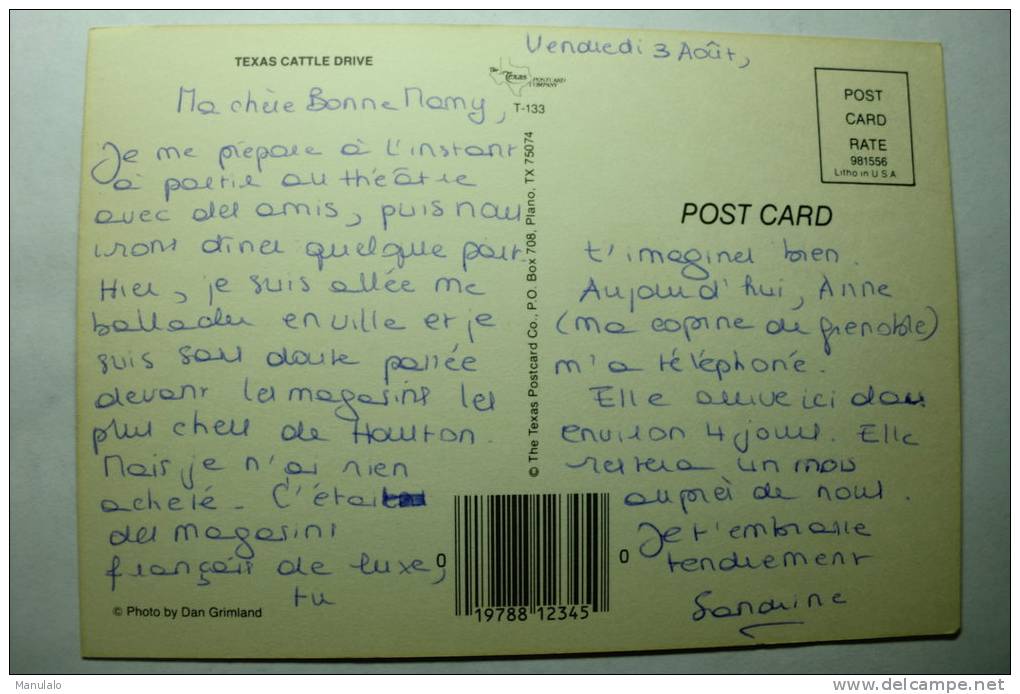 TEXAS CATTLE DRIVE
Vendredi 3 Août,
The Texas POSTCARD COMPANY
T-133
Ma chère Bonne Mamy,
Je me prépare à l'instant
à partir au théâtre
avec des amis, puis nous
irons dîner quelque part.
Hier, je suis allée me
ballader en ville et je
suis sans doute passée
devant les magasins les
plus chers de Houston.
Mais je n'ai rien
acheté. C'était
des magasins
français de luxe,
tu
© Photo by Dan Grimland
© The Texas Postcard Co., P.O. Box 708, Plano, TX 75074
POST
CARD
RATE
981556
Litho in U S A
POST CARD
t'imagines bien.
Aujourd'hui, Anne
(ma copine de Grenoble)
m'a téléphoné.
Elle arrive ici dans
environ 4 jours. Elle
restera un mois
auprès de nous.
Je t'embrasse
tendrement
Sandrine
0 19788 12345 0
Manulalo
delcampe.net